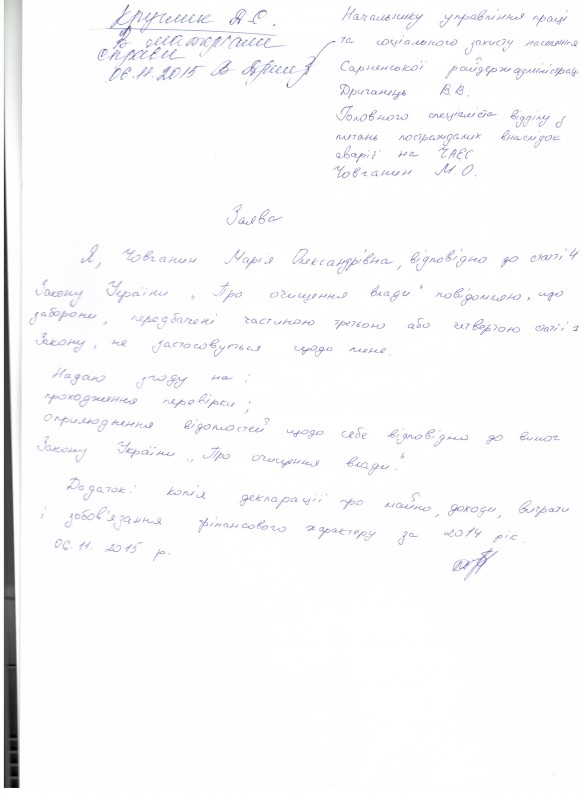 Крушик А.С.
В матеріали
справи
06.11.2015 В
Начальнику управління праці
та соціального захисту населення
Сарненської райдержадміністрац.
Дриганець В.В.
Головного спеціаліста відділу з
питань постраждалих внаслідок
аварії на ЧАЕС
Човганин М.О.
Заява
Я, Човганин Марія Олександрівна, відповідно до статті 4
Закону України „Про очищення влади" повідомляю, що
заборони, передбачені частиною третьою або четвертою статті 1
Закону, не застосовується щодо мене.
Надаю згоду на:
проходження перевірки;
оприлюднення відомостей щодо себе відповідно до вимог
Закону України „Про очищення влади."
Додаток: копія декларації про майно, доходи, витрати
і зобов'язання фінансового характеру за 2014 рік.
06.11.2015 р.